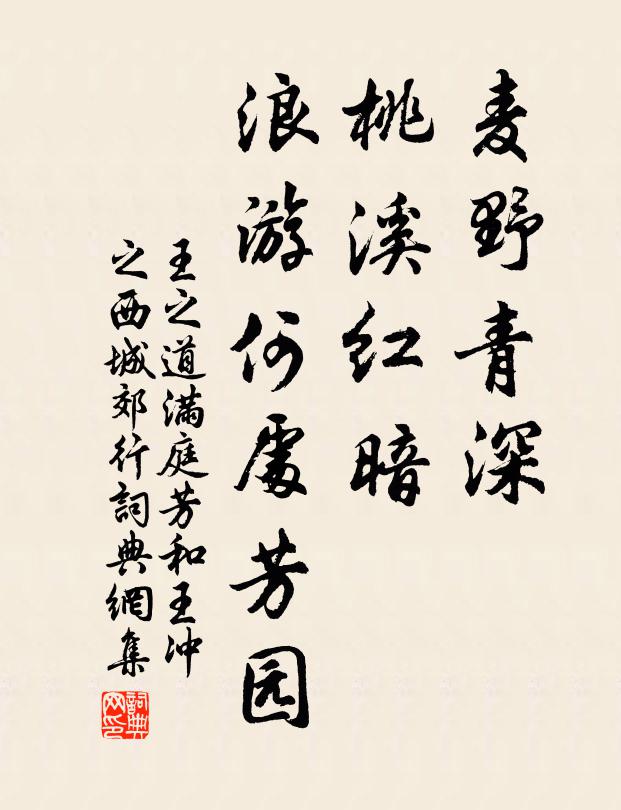 麦野青深
桃溪红暗
浪游何處芳园
王之道满庭芳和王冲
之西城郊行詞典網集
詞典
网印